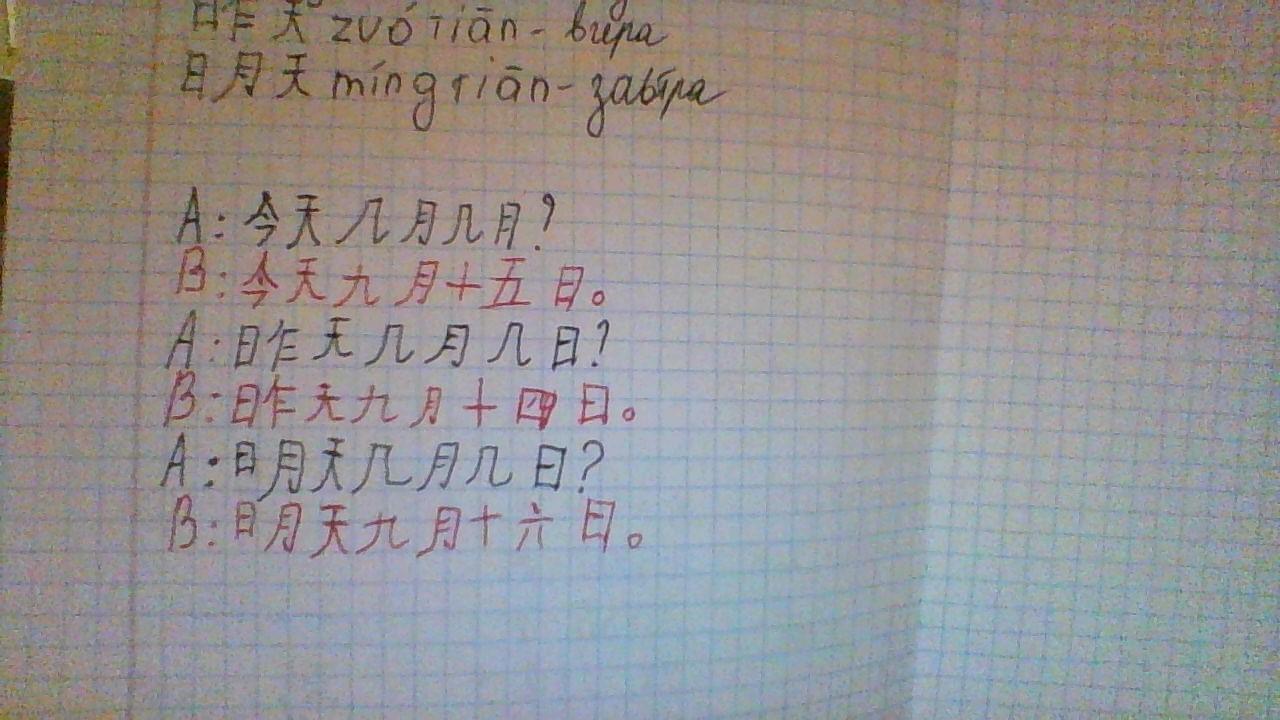 昨天 zuótiān - вчера
明天 míngtiān - завтра
A: 今天几月几月?
B: 今天九月十五日。
A: 昨天几月几日?
B: 昨天九月十四日。
A: 明天几月几日?
B: 明天九月十六日。